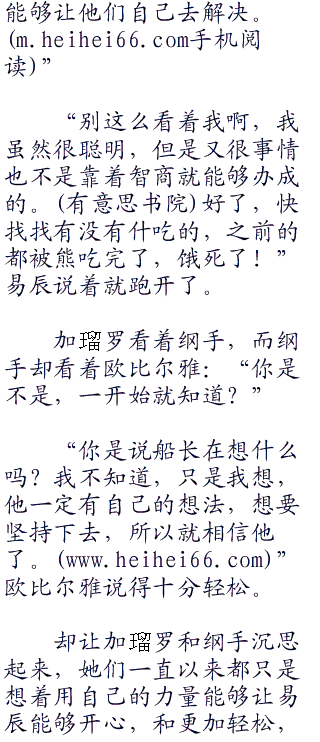 能够让他们自己去解决。
(m.heihei66.com手机阅
读)”
“别这么看着我啊，我
虽然很聪明，但是又很事情
也不是靠着智商就能够办成
的。(有意思书院)好了，快
找找有没有什吃的，之前的
都被熊吃完了，饿死了！”
易辰说着就跑开了。
加瑠罗看着纲手，而纲
手却看着欧比尔雅：“你是
不是，一开始就知道？”
“你是说船长在想什么
吗？我不知道，只是我想，
他一定有自己的想法，想要
坚持下去，所以就相信他
了。(www.heihei66.com)”
欧比尔雅说得十分轻松。
却让加瑠罗和纲手沉思
起来，她们一直以来都只是
想着用自己的力量能够让易
辰能够开心，和更加轻松，